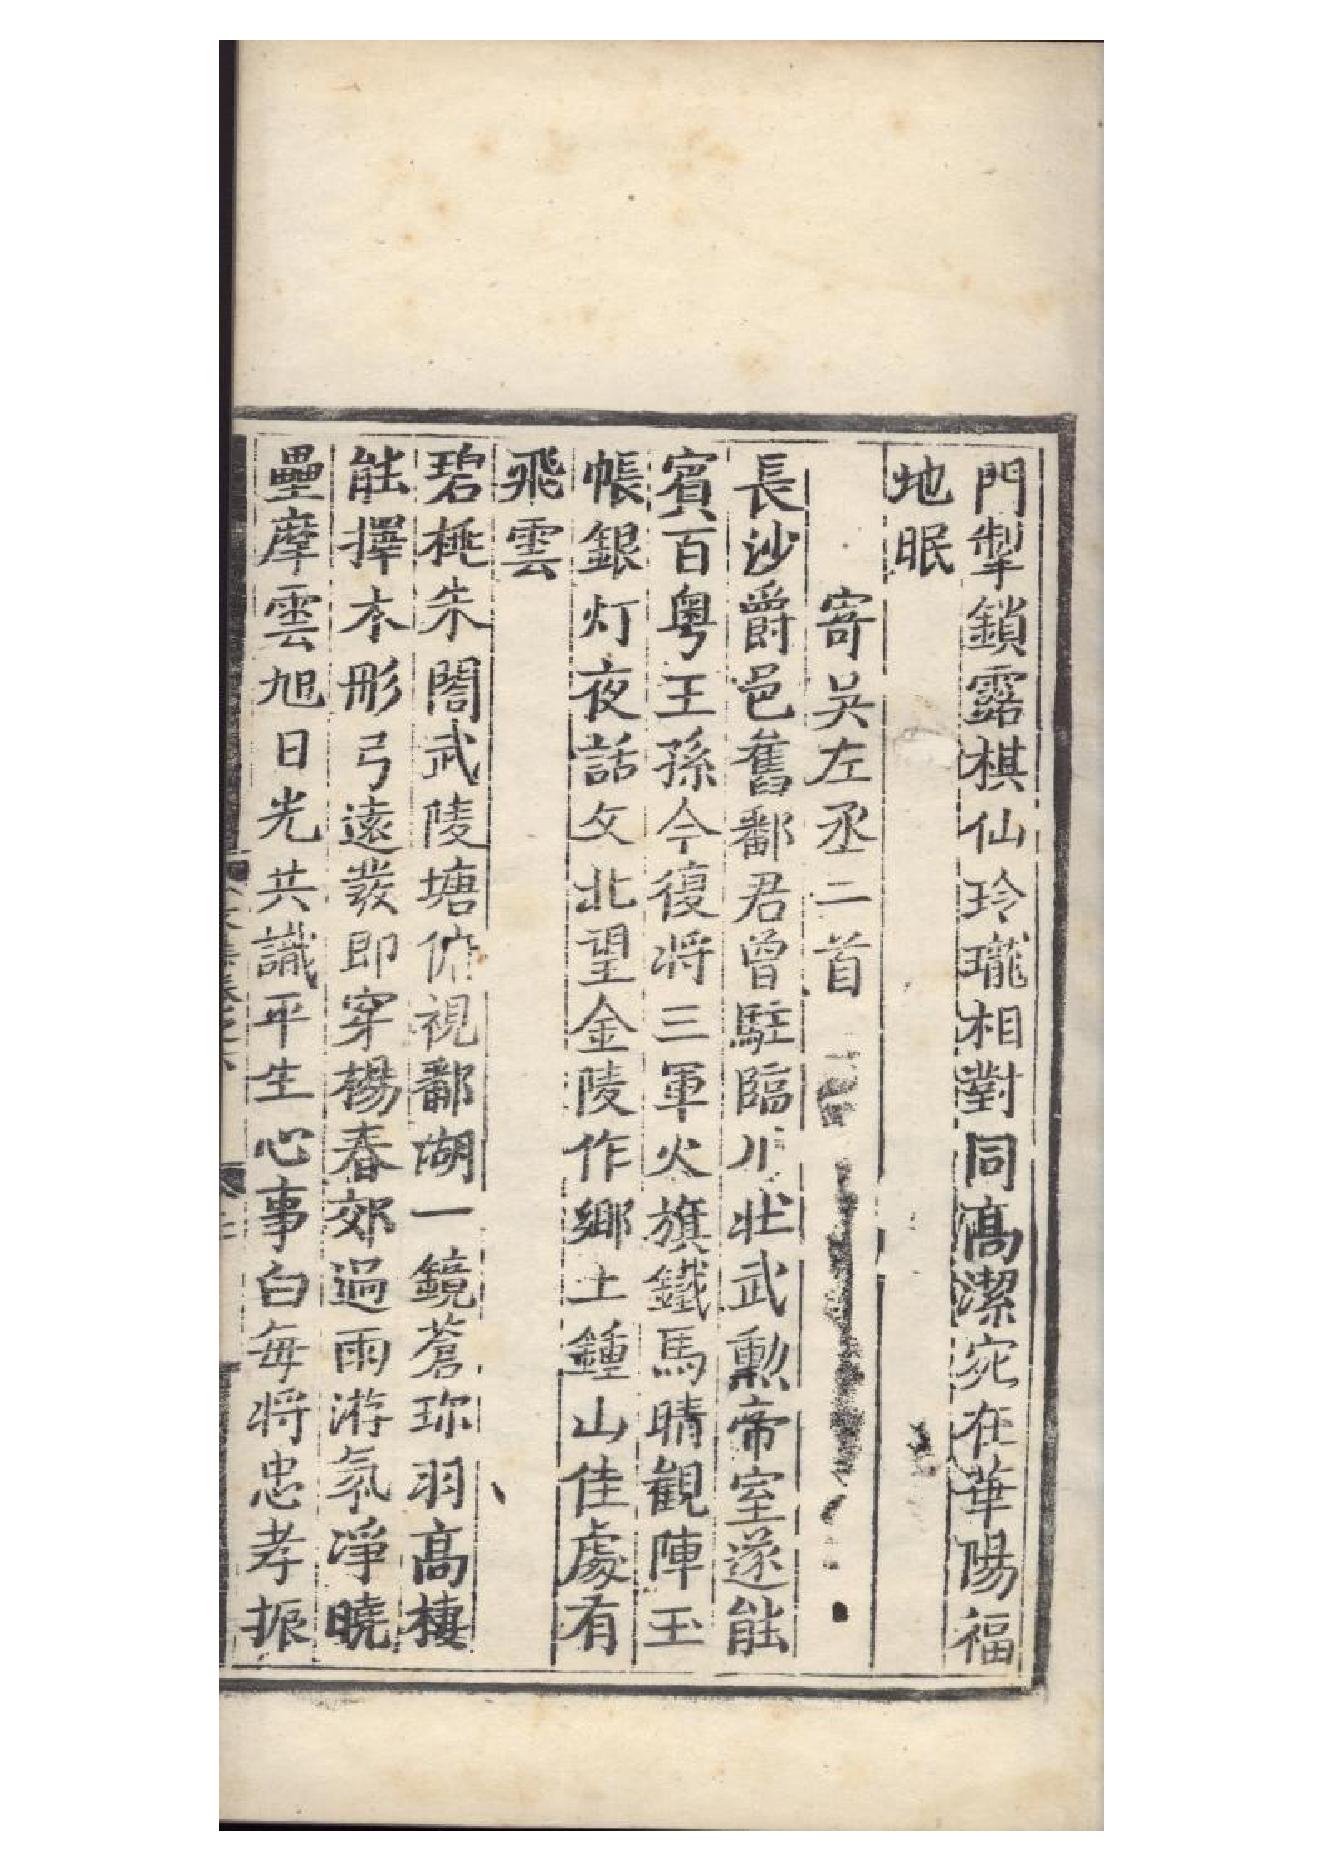 門掣鎖露棋仙玲瓏相對同高潔宛在華陽福
地眠
寄吴左丞二首
長沙爵邑舊鄱君曾駐臨川壯武勲帝室遂能
賓百粤王孫今復将三軍火旗鐵馬晴觀陣玉
帳銀灯夜話文北望金陵作鄉土鍾山佳處有
飛雲
碧桃朱閣武陵塘俯視鄱湖一鏡蒼珎羽高棲
能擇木彤弓遠發即穿楊春郊過雨游氛凈曉
壘摩雲旭日光共識平生心事白每将忠孝振